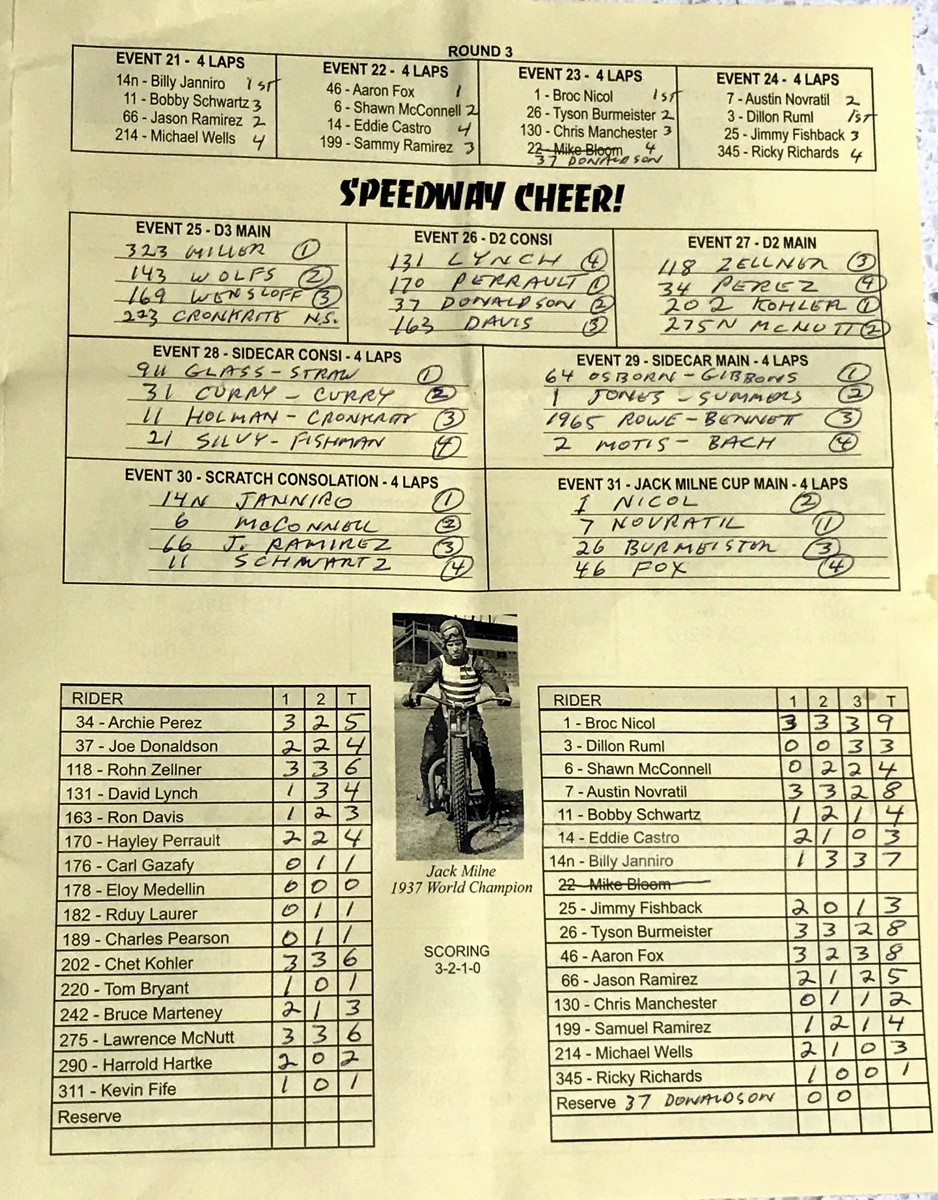 ROUND 3
EVENT 21 - 4 LAPS
14n - Billy Janniro 1ST
11 - Bobby Schwartz 3
66 - Jason Ramirez 2
214 - Michael Wells 4
EVENT 22 - 4 LAPS
46 - Aaron Fox 1
6 - Shawn McConnell 2
14 - Eddie Castro 4
199 - Sammy Ramirez 3
EVENT 23 - 4 LAPS
1 - Broc Nicol 1ST
26 - Tyson Burmeister 2
130 - Chris Manchester 3
22 - Mike Bloom 4
37 DONALDSON
EVENT 24 - 4 LAPS
7 - Austin Novratil 2
3 - Dillon Ruml 1ST
25 - Jimmy Fishback 3
345 - Ricky Richards 4
SPEEDWAY CHEER!
EVENT 25 - D3 MAIN
323 MILLER 1
143 WOLFS 2
169 WENSLOFF 3
223 CRONKRITE N.S.
EVENT 26 - D2 CONSI
131 LYNCH 4
170 PERRAULT 1
37 DONALDSON 2
163 DAVIS 3
EVENT 27 - D2 MAIN
118 ZELLNER 3
34 PEREZ 4
202 KOHLER 1
275N MCNUTT 2
EVENT 28 - SIDECAR CONSI - 4 LAPS
911 GLASS - STRAW 1
31 CURRY - CURRY 2
11 HOLMAN - CRONKRITE 3
21 SILVY - FISHMAN 4
EVENT 29 - SIDECAR MAIN - 4 LAPS
64 OSBORN - GIBBONS 1
1 JONES - SUMMERS 2
1965 ROWE - BENNETT 3
2 MOTIS - BACH 4
EVENT 30 - SCRATCH CONSOLATION - 4 LAPS
14N JANNIRO 1
6 MCCONNELL 2
66 J. RAMIREZ 3
11 SCHWARTZ 4
EVENT 31 - JACK MILNE CUP MAIN - 4 LAPS
1 NICOL 2
7 NOVRATIL 1
26 BURMEISTER 3
46 FOX 4
RIDER 1 2 T
34 - Archie Perez 3 2 5
37 - Joe Donaldson 2 2 4
118 - Rohn Zellner 3 3 6
131 - David Lynch 1 3 4
163 - Ron Davis 1 2 3
170 - Hayley Perrault 2 2 4
176 - Carl Gazafy 0 1 1
178 - Eloy Medellin 0 0 0
182 - Rduy Laurer 0 1 1
189 - Charles Pearson 0 1 1
202 - Chet Kohler 3 3 6
220 - Tom Bryant 1 0 1
242 - Bruce Marteney 2 1 3
275 - Lawrence McNutt 3 3 6
290 - Harrold Hartke 2 0 2
311 - Kevin Fife 1 0 1
Reserve
Jack Milne
1937 World Champion
SCORING
3-2-1-0
RIDER 1 2 3 T
1 - Broc Nicol 3 3 3 9
3 - Dillon Ruml 0 0 3 3
6 - Shawn McConnell 0 2 2 4
7 - Austin Novratil 3 3 2 8
11 - Bobby Schwartz 1 2 1 4
14 - Eddie Castro 2 1 0 3
14n - Billy Janniro 1 3 3 7
22 - Mike Bloom
25 - Jimmy Fishback 2 0 1 3
26 - Tyson Burmeister 3 3 2 8
46 - Aaron Fox 3 2 3 8
66 - Jason Ramirez 2 1 2 5
130 - Chris Manchester 0 1 1 2
199 - Samuel Ramirez 1 2 1 4
214 - Michael Wells 2 1 0 3
345 - Ricky Richards 1 0 0 1
Reserve 37 DONALDSON 0 0